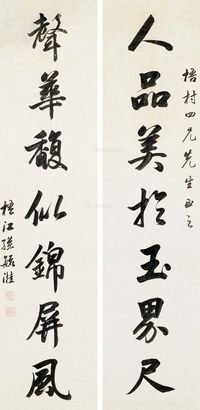 人品美於玉界尺
梧村四兄先生正之
聲華馥似錦屏風
梧江孫毓溎